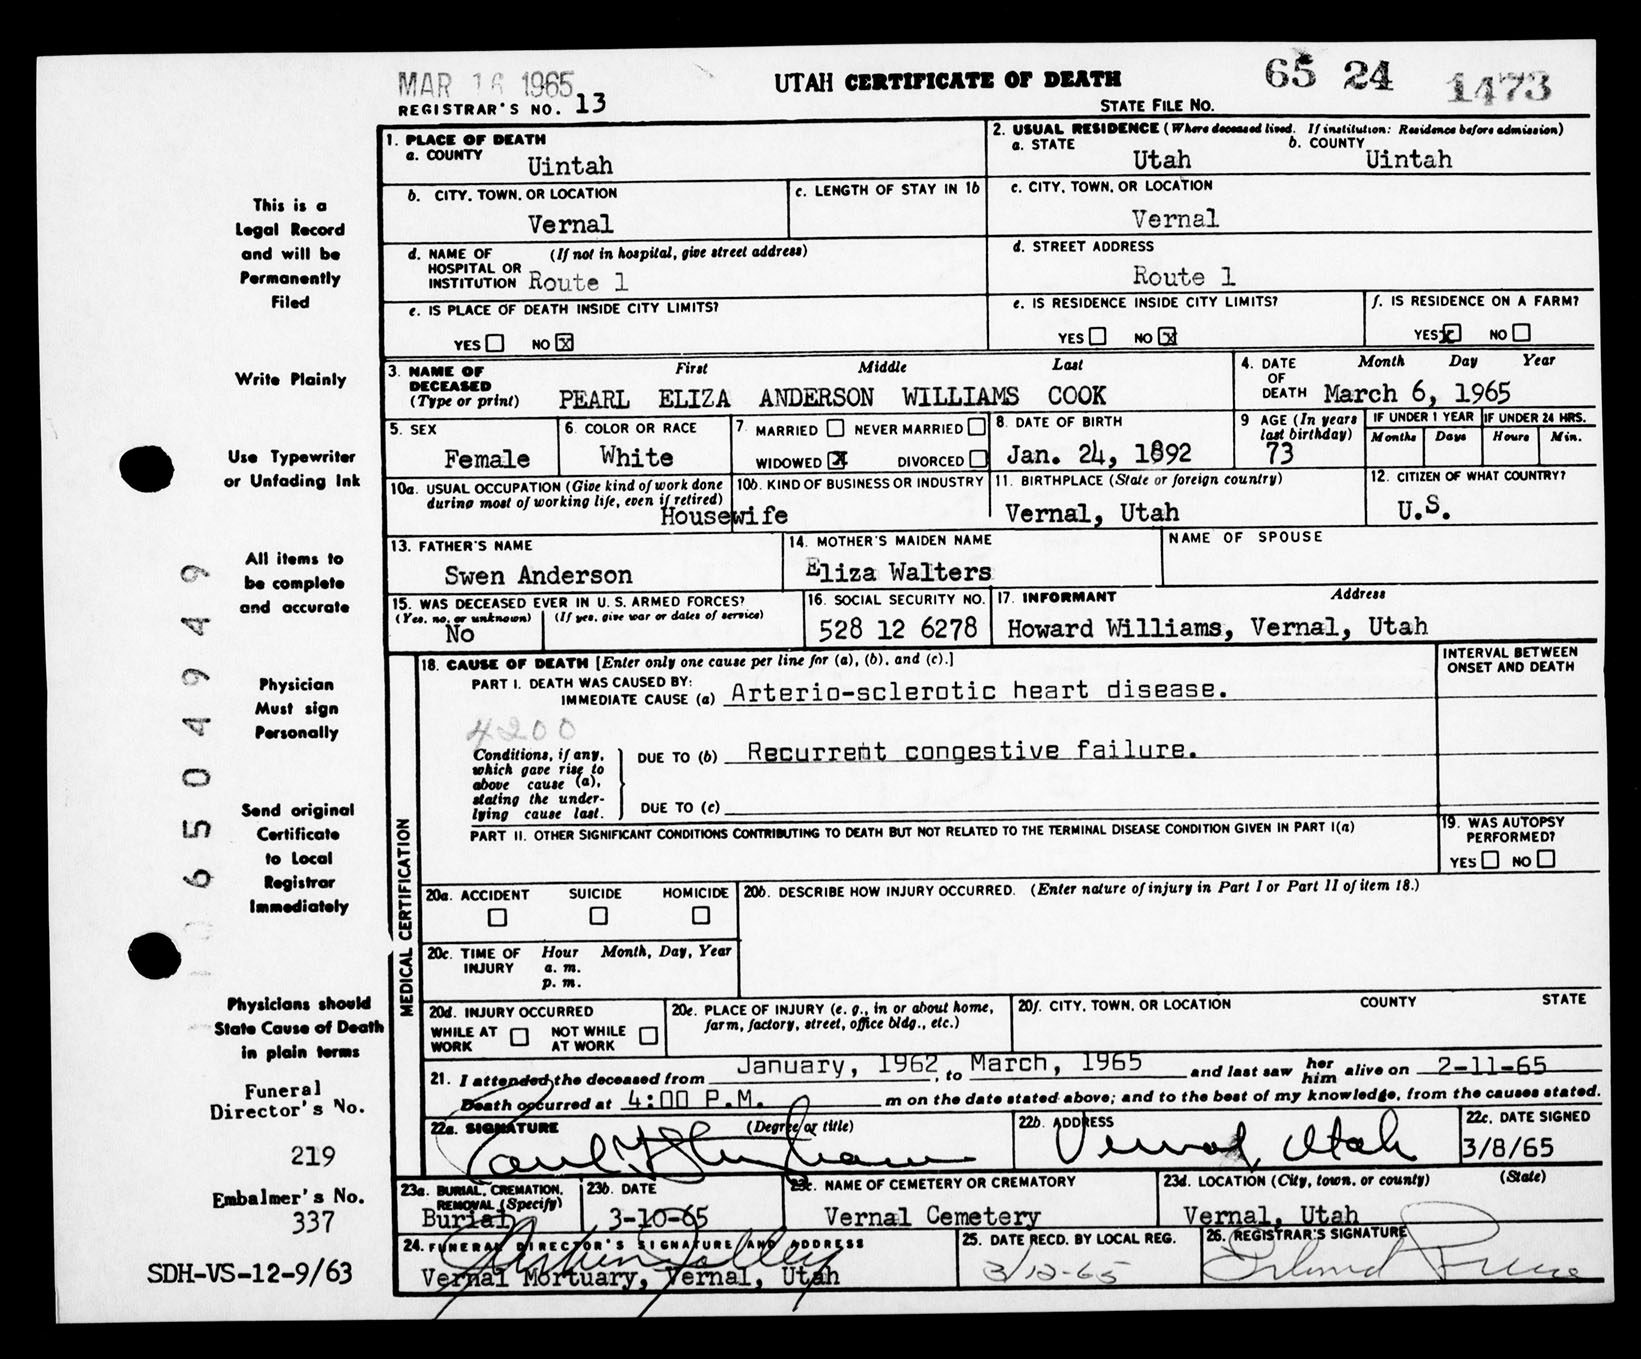 MAR 16 1965
UTAH CERTIFICATE OF DEATH
65 24 1473
REGISTRAR'S NO. 13
STATE FILE NO.
This is a
Legal Record
and will be
Permanently
Filed
Write Plainly
Use Typewriter
or Unfading Ink
All items to
be complete
and accurate
Physician
Must sign
Personally
Send original
Certificate
to Local
Registrar
Immediately
Physicians should
State Cause of Death
in plain terms
Funeral
Director's No.
219
Embalmer's No.
337
SDH-VS-12-9/63
6504949
1. PLACE OF DEATH
a. COUNTY
Uintah
2. USUAL RESIDENCE (Where deceased lived. If institution: Residence before admission)
a. STATE b. COUNTY
Utah Uintah
b. CITY, TOWN, OR LOCATION
Vernal
c. LENGTH OF STAY IN 1b
c. CITY, TOWN, OR LOCATION
Vernal
d. NAME OF (If not in hospital, give street address)
HOSPITAL OR
INSTITUTION Route 1
d. STREET ADDRESS
Route 1
e. IS PLACE OF DEATH INSIDE CITY LIMITS?
YES NO X
e. IS RESIDENCE INSIDE CITY LIMITS?
YES NO X
f. IS RESIDENCE ON A FARM?
YES X NO
3. NAME OF First Middle Last
DECEASED
(Type or print) PEARL ELIZA ANDERSON WILLIAMS COOK
4. DATE Month Day Year
OF
DEATH March 6, 1965
5. SEX
Female
6. COLOR OR RACE
White
7. MARRIED NEVER MARRIED
WIDOWED X DIVORCED
8. DATE OF BIRTH
Jan. 24, 1892
9 AGE (In years
last birthday)
73
IF UNDER 1 YEAR IF UNDER 24 HRS.
Months Days Hours Min.
10a. USUAL OCCUPATION (Give kind of work done
during most of working life, even if retired)
Housewife
10b. KIND OF BUSINESS OR INDUSTRY
11. BIRTHPLACE (State or foreign country)
Vernal, Utah
12. CITIZEN OF WHAT COUNTRY?
U.S.
13. FATHER'S NAME
Swen Anderson
14. MOTHER'S MAIDEN NAME
Eliza Walters
NAME OF SPOUSE
15. WAS DECEASED EVER IN U.S. ARMED FORCES?
(Yes, no, or unknown) (If yes, give war or dates of service)
No
16. SOCIAL SECURITY NO.
528 12 6278
17. INFORMANT Address
Howard Williams, Vernal, Utah
MEDICAL CERTIFICATION
18. CAUSE OF DEATH [Enter only one cause per line for (a), (b), and (c).]
INTERVAL BETWEEN
ONSET AND DEATH
PART I. DEATH WAS CAUSED BY:
IMMEDIATE CAUSE (a) Arterio-sclerotic heart disease.
4200
Conditions, if any,
which gave rise to
above cause (a),
stating the under-
lying cause last.
DUE TO (b) Recurrent congestive failure.
DUE TO (c)
PART II. OTHER SIGNIFICANT CONDITIONS CONTRIBUTING TO DEATH BUT NOT RELATED TO THE TERMINAL DISEASE CONDITION GIVEN IN PART I(a)
19. WAS AUTOPSY
PERFORMED?
YES NO
20a. ACCIDENT SUICIDE HOMICIDE
20b. DESCRIBE HOW INJURY OCCURRED. (Enter nature of injury in Part I or Part II of item 18.)
20c. TIME OF Hour Month, Day, Year
INJURY a. m.
p. m.
20d. INJURY OCCURRED
WHILE AT NOT WHILE
WORK AT WORK
20e. PLACE OF INJURY (e. g., in or about home,
farm, factory, street, office bldg., etc.)
20f. CITY, TOWN, OR LOCATION COUNTY STATE
21. I attended the deceased from January, 1962, to March, 1965 and last saw her him alive on 2-11-65
Death occurred at 4:00 P.M. m on the date stated above; and to the best of my knowledge, from the causes stated.
22a. SIGNATURE (Degree or title)
22b. ADDRESS
Vernal, Utah
22c. DATE SIGNED
3/8/65
23a. BURIAL, CREMATION,
REMOVAL (Specify)
Burial
23b. DATE
3-10-65
23c. NAME OF CEMETERY OR CREMATORY
Vernal Cemetery
23d. LOCATION (City, town, or county) (State)
Vernal, Utah
24. FUNERAL DIRECTOR'S SIGNATURE AND ADDRESS
Vernal Mortuary, Vernal, Utah
25. DATE RECD. BY LOCAL REG.
3/12-65
26. REGISTRAR'S SIGNATURE